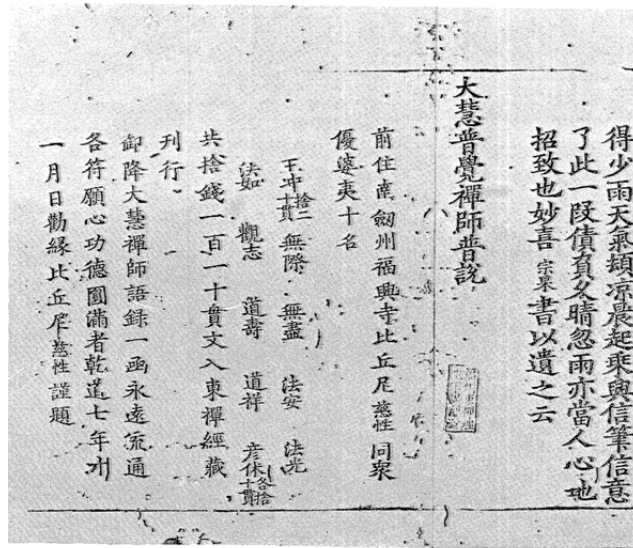 得少雨天氣頗凉晨起乘興信筆信意
了此一段債負久晴忽雨亦當人心地
招致也妙喜宗杲書以遺之云
大慧普覺禪師普說
前住南劔州福興寺比丘尼慈性同衆
優婆夷十名
王冲捨二十貫 無際 無盡 法安 法光
法如 觀志 道壽 道祥 彦休各捨十貫
共捨錢一百一十貫文入東禪經藏
刊行
御降大慧禪師語録一函永遠流通
各符願心功德圓滿者乾道七年
一月日勸縁比丘尼慈性謹題